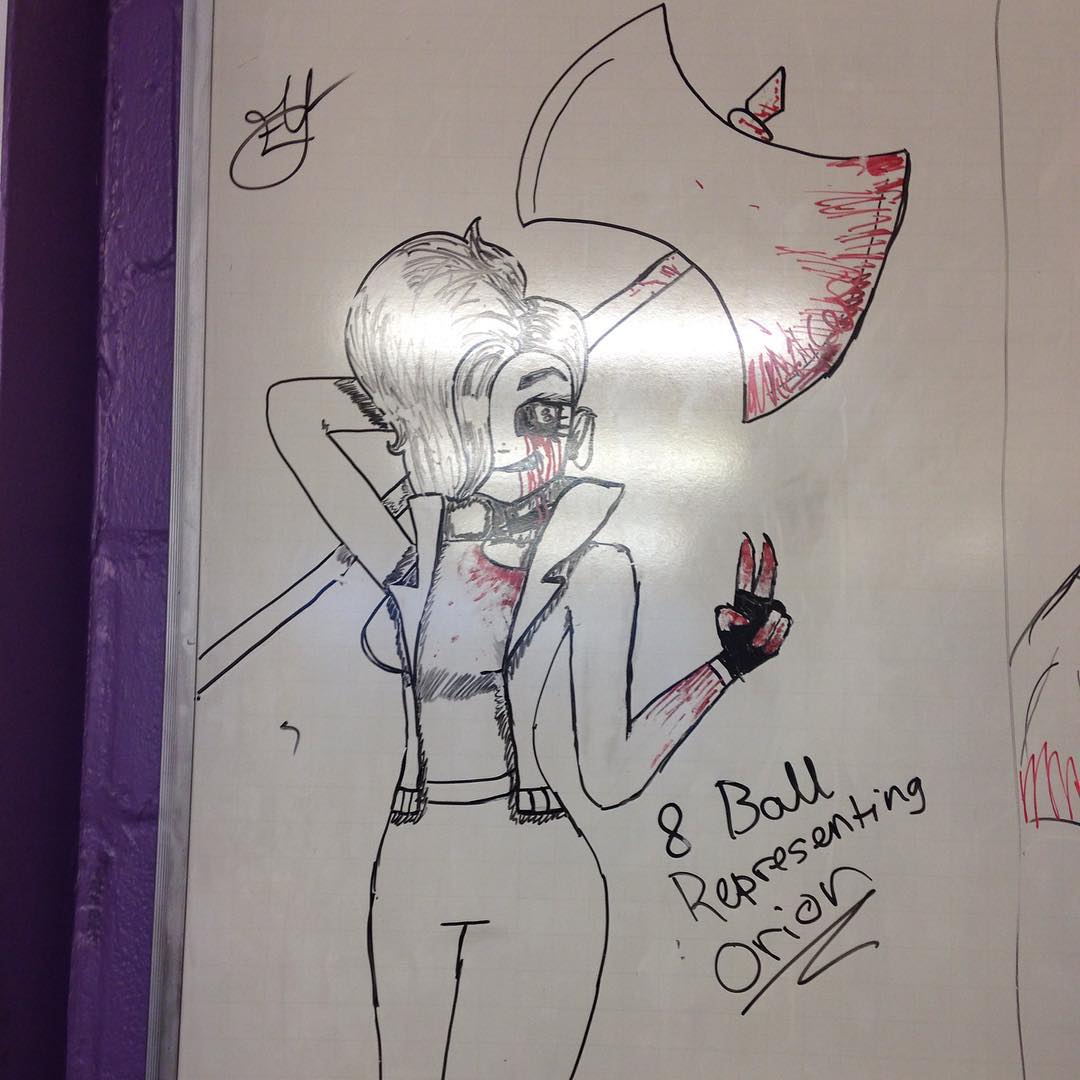 8 Ball
Representing
Orion